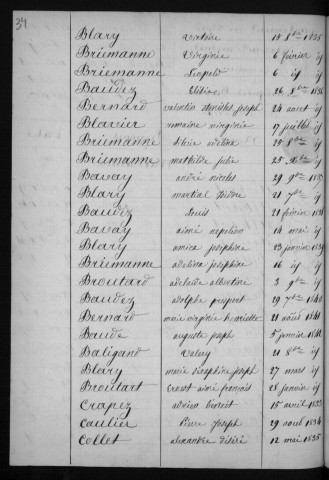 34
Blary Victoire 18 8bre 1835
Briemanne Virginie 6 février id
Briemanne Léopold 6 id id
Baudez Elidie 26 8bre 1836
Bernard valentin joseph 24 aout id
Blavier romaine virginie 17 juillet id
Briemanne adelina 28 8bre id
Briemanne mathilde julie 25 Xbre id
Bavay andré nicolas 29 9bre 1837
Blary martial isidore 21 7bre id
Baudez Louis 21 février 1838
Bavay aimé napoléon 14 mai id
Blary amica josephine 23 janvier 1839
Briemanne adelina josephine 16 id id
Broutard adelaide albertine 3 9bre id
Baudez adolphe prospert 29 7bre 1840
Bernard marie virginie henriette 21 aout 1841
Baude auguste joseph 5 janvier 1842
Baligand Valery 21 8bre id
Blary marie séraphine joseph 27 mars id
Broutart Ernest aimé françois 28 janvier id
Crapez adrien benoit 15 avril 1833
Caulier Pierre Joseph 29 aout 1834
Collet alexandre désiré 12 mai 1835